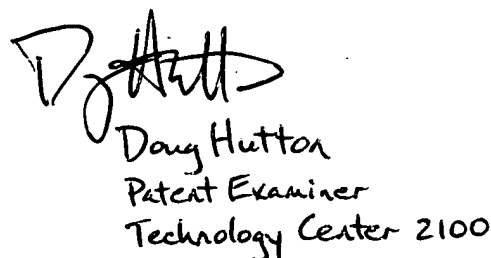 Doug Hutton
Patent Examiner
Technology Center 2100